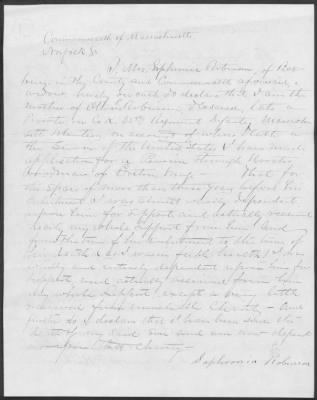 Commonwealth of Massachusetts
Norfolk Ss
I, Mrs. Sophronia Robinson, of Rox-
bury, in the County and Commonwealth aforesaid,
widow, hereby on oath do declare that I am the
mother of Robinson, deceased, late a
Private in Co. Regiment Infantry Massachu-
setts Volunteers, on account of whose death in
the Service of the United States I have made
application for a Pension through Horatio
Woodman of Boston - That for
the space of more than three years before his
enlistment I was almost wholly dependent
upon him for support and actually received
nearly my whole support from him, and
from the time of his enlistment to the time of
his death I was
and entirely dependent upon him for
support, and actually received from him
my whole support, except a very little
received from Charity - And
further do I declare that it has been since the
death of my said son and am now depend-
ent Charity -
Sophronia Robinson